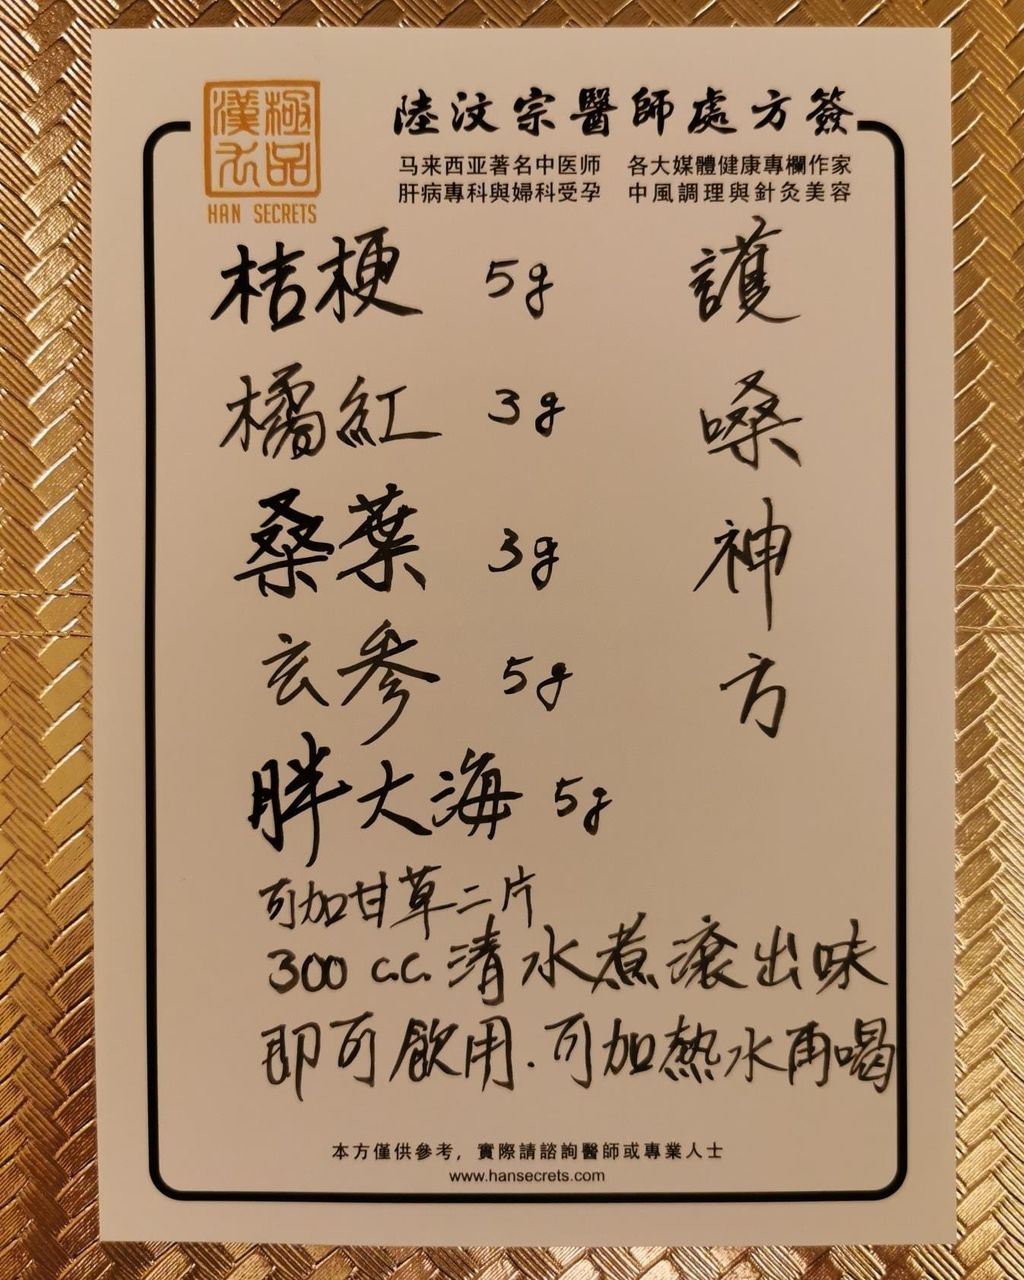 極品
漢方
HAN SECRETS
陸汶宗醫師處方簽
马来西亚著名中医师 各大媒體健康專欄作家
肝病專科與婦科受孕 中風調理與針灸美容
護嗓神方
桔梗 5g
橘紅 3g
桑葉 3g
玄參 5g
胖大海 5g
可加甘草二片
300 c.c. 清水煮滚出味
即可飲用.可加熱水再喝
本方僅供參考，實際請諮詢醫師或專業人士
www.hansecrets.com